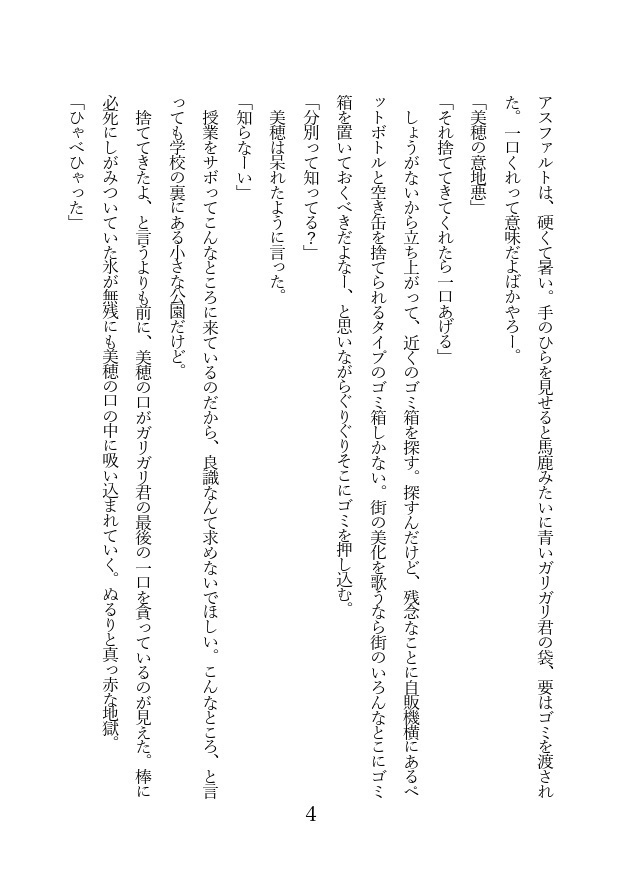 アスファルトは、硬くて暑い。手のひらを見せると馬鹿みたいに青いガリガリ君の袋、要はゴミを渡され
た。一口くれって意味だよばかやろー。
「美穂の意地悪」
「それ捨ててきてくれたら一口あげる」
　しょうがないから立ち上がって、近くのゴミ箱を探す。探すんだけど、残念なことに自販機横にあるペ
ットボトルと空き缶を捨てられるタイプのゴミ箱しかない。街の美化を歌うなら街のいろんなとこにゴミ
箱を置いておくべきだよなー、と思いながらぐりぐりそこにゴミを押し込む。
「分別って知ってる？」
　美穂は呆れたように言った。
「知らなーい」
　授業をサボってこんなところに来ているのだから、良識なんて求めないでほしい。こんなところ、と言
っても学校の裏にある小さな公園だけど。
　捨ててきたよ、と言うよりも前に、美穂の口がガリガリ君の最後の一口を貪っているのが見えた。棒に
必死にしがみついていた氷が無残にも美穂の口の中に吸い込まれていく。ぬるりと真っ赤な地獄。
「ひゃべひゃった」
4